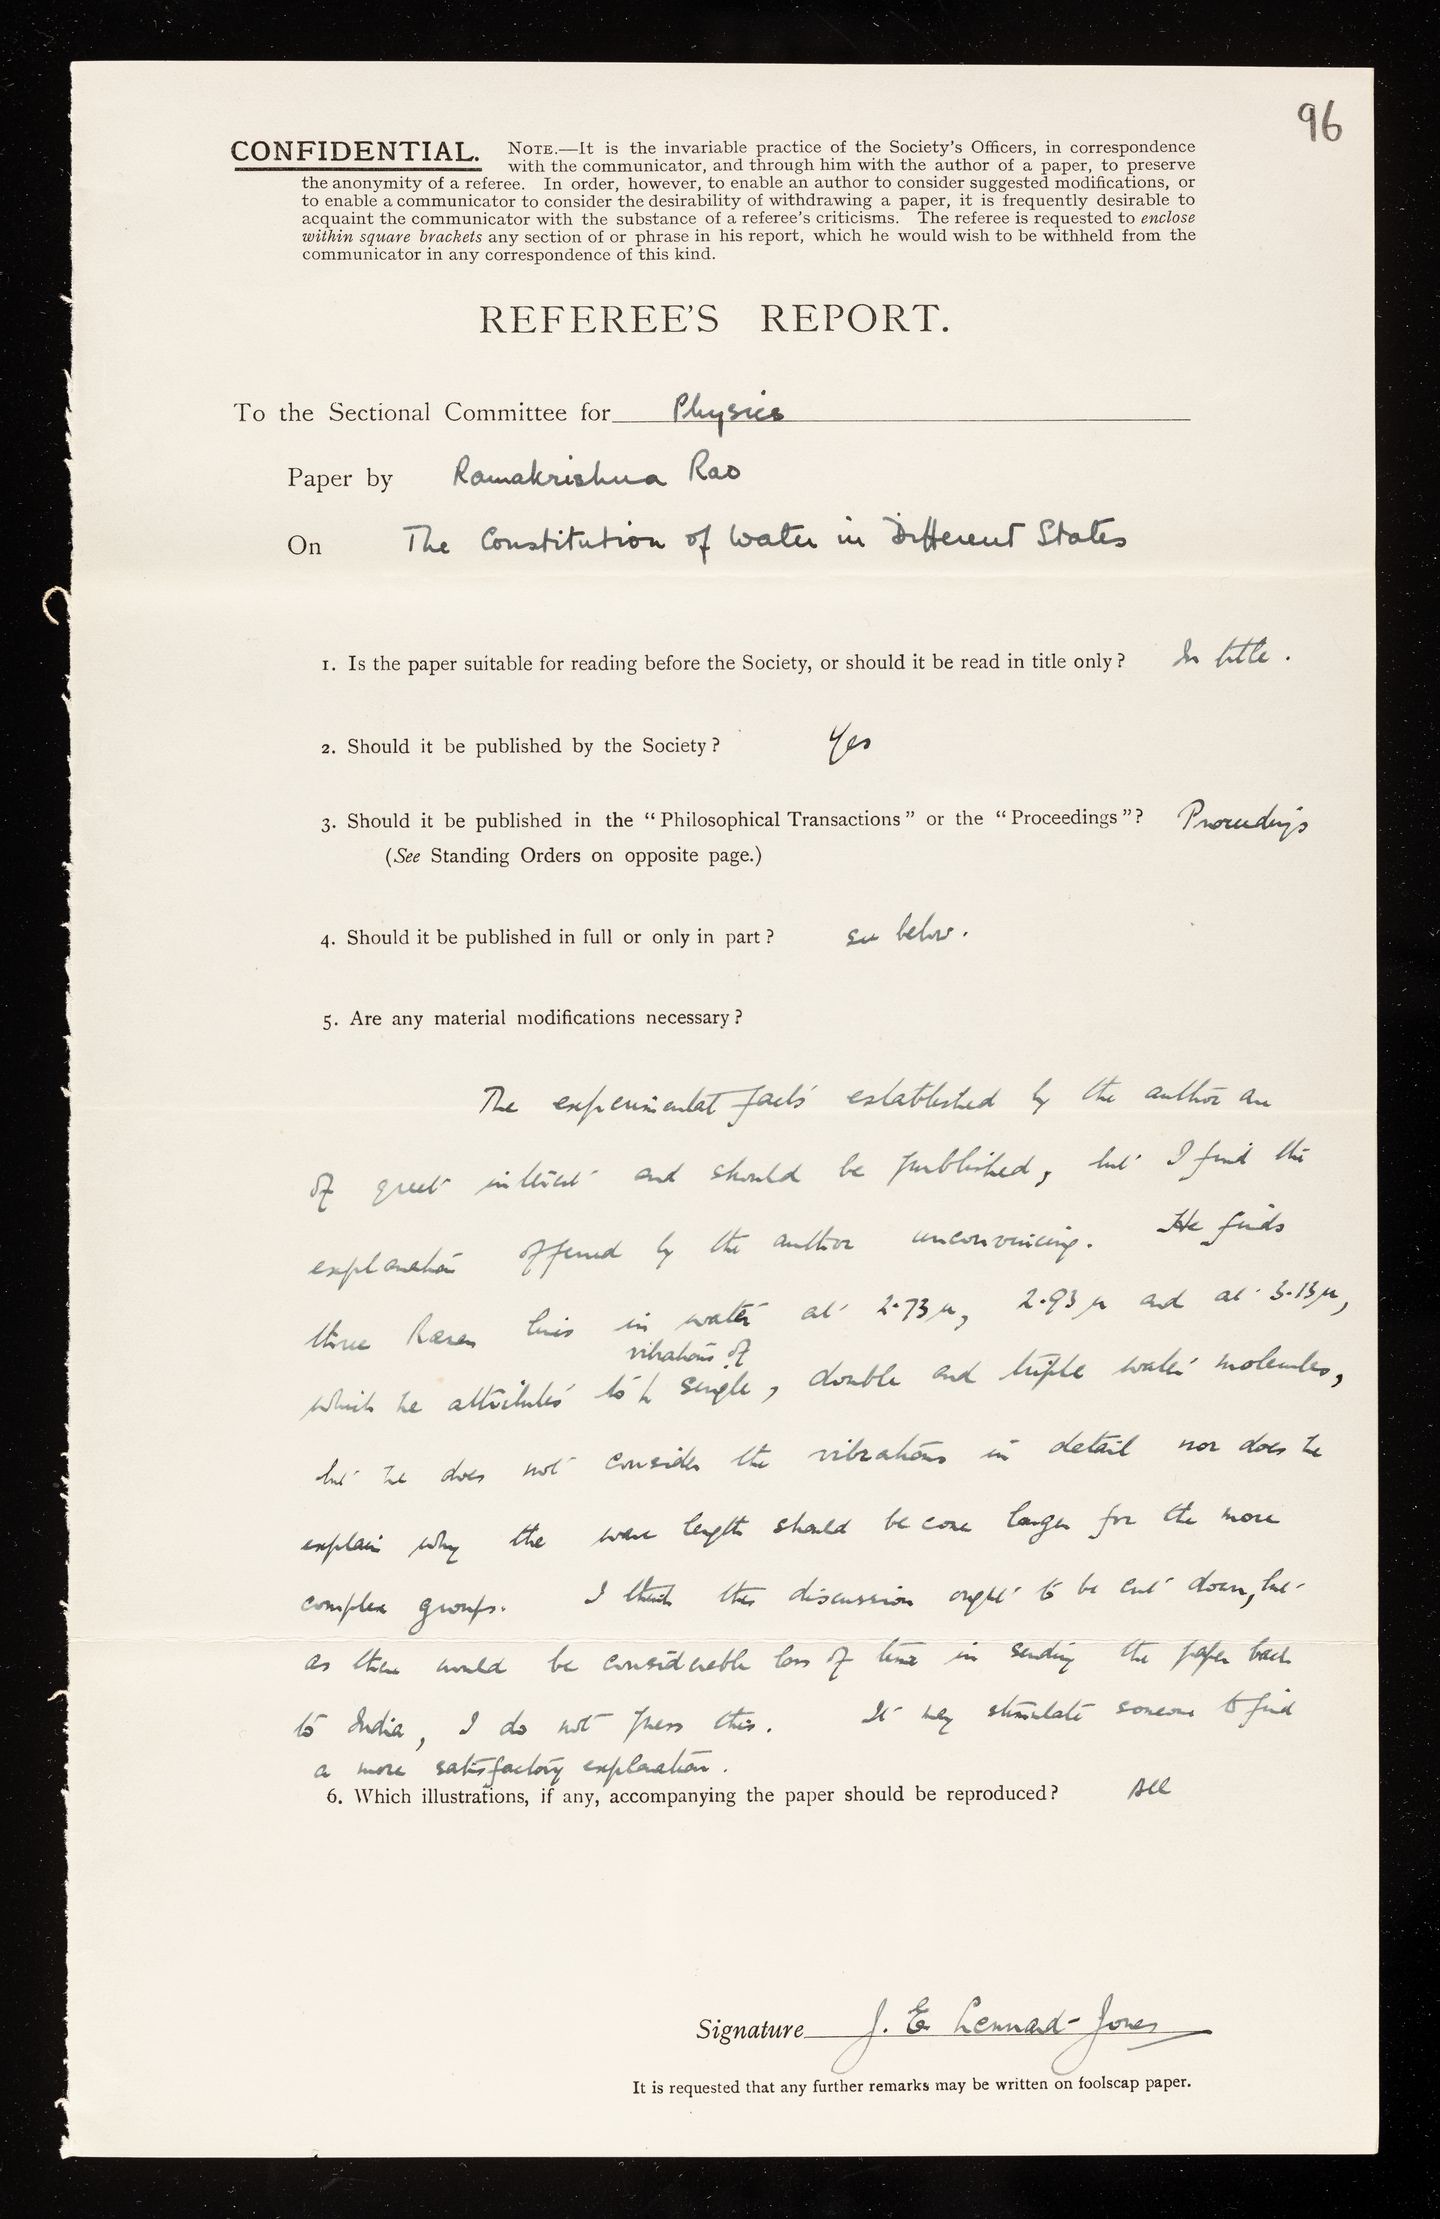 96
CONFIDENTIAL. NOTE.—It is the invariable practice of the Society's Officers, in correspondence
with the communicator, and through him with the author of a paper, to preserve
the anonymity of a referee. In order, however, to enable an author to consider suggested modifications, or
to enable a communicator to consider the desirability of withdrawing a paper, it is frequently desirable to
acquaint the communicator with the substance of a referee's criticisms. The referee is requested to enclose
within square brackets any section of or phrase in his report, which he would wish to be withheld from the
communicator in any correspondence of this kind.
REFEREE'S REPORT.
To the Sectional Committee for Physics
Paper by Ramakrishna Rao
On The Constitution of Water in Different States
1. Is the paper suitable for reading before the Society, or should it be read in title only? In title.
2. Should it be published by the Society? Yes
3. Should it be published in the "Philosophical Transactions" or the "Proceedings"? Proceedings
(See Standing Orders on opposite page.)
4. Should it be published in full or only in part? see below.
5. Are any material modifications necessary?
The experimental facts established by the author are
of great interest and should be published, but I find the
explanation offered by the author unconvincing. He finds
three Raman lines in water at 2.73μ, 2.93μ and at 3.13μ,
vibrations of
which he attributes to single, double and triple water molecules,
but he does not consider the vibrations in detail nor does he
explain why the wave length should become longer for the more
complex groups. I think this discussion ought to be cut down, but
as there would be considerable loss of time in sending the paper back
to India, I do not press this. It may stimulate someone to find
a more satisfactory explanation.
6. Which illustrations, if any, accompanying the paper should be reproduced? All
Signature J. E. Lennard-Jones
It is requested that any further remarks may be written on foolscap paper.